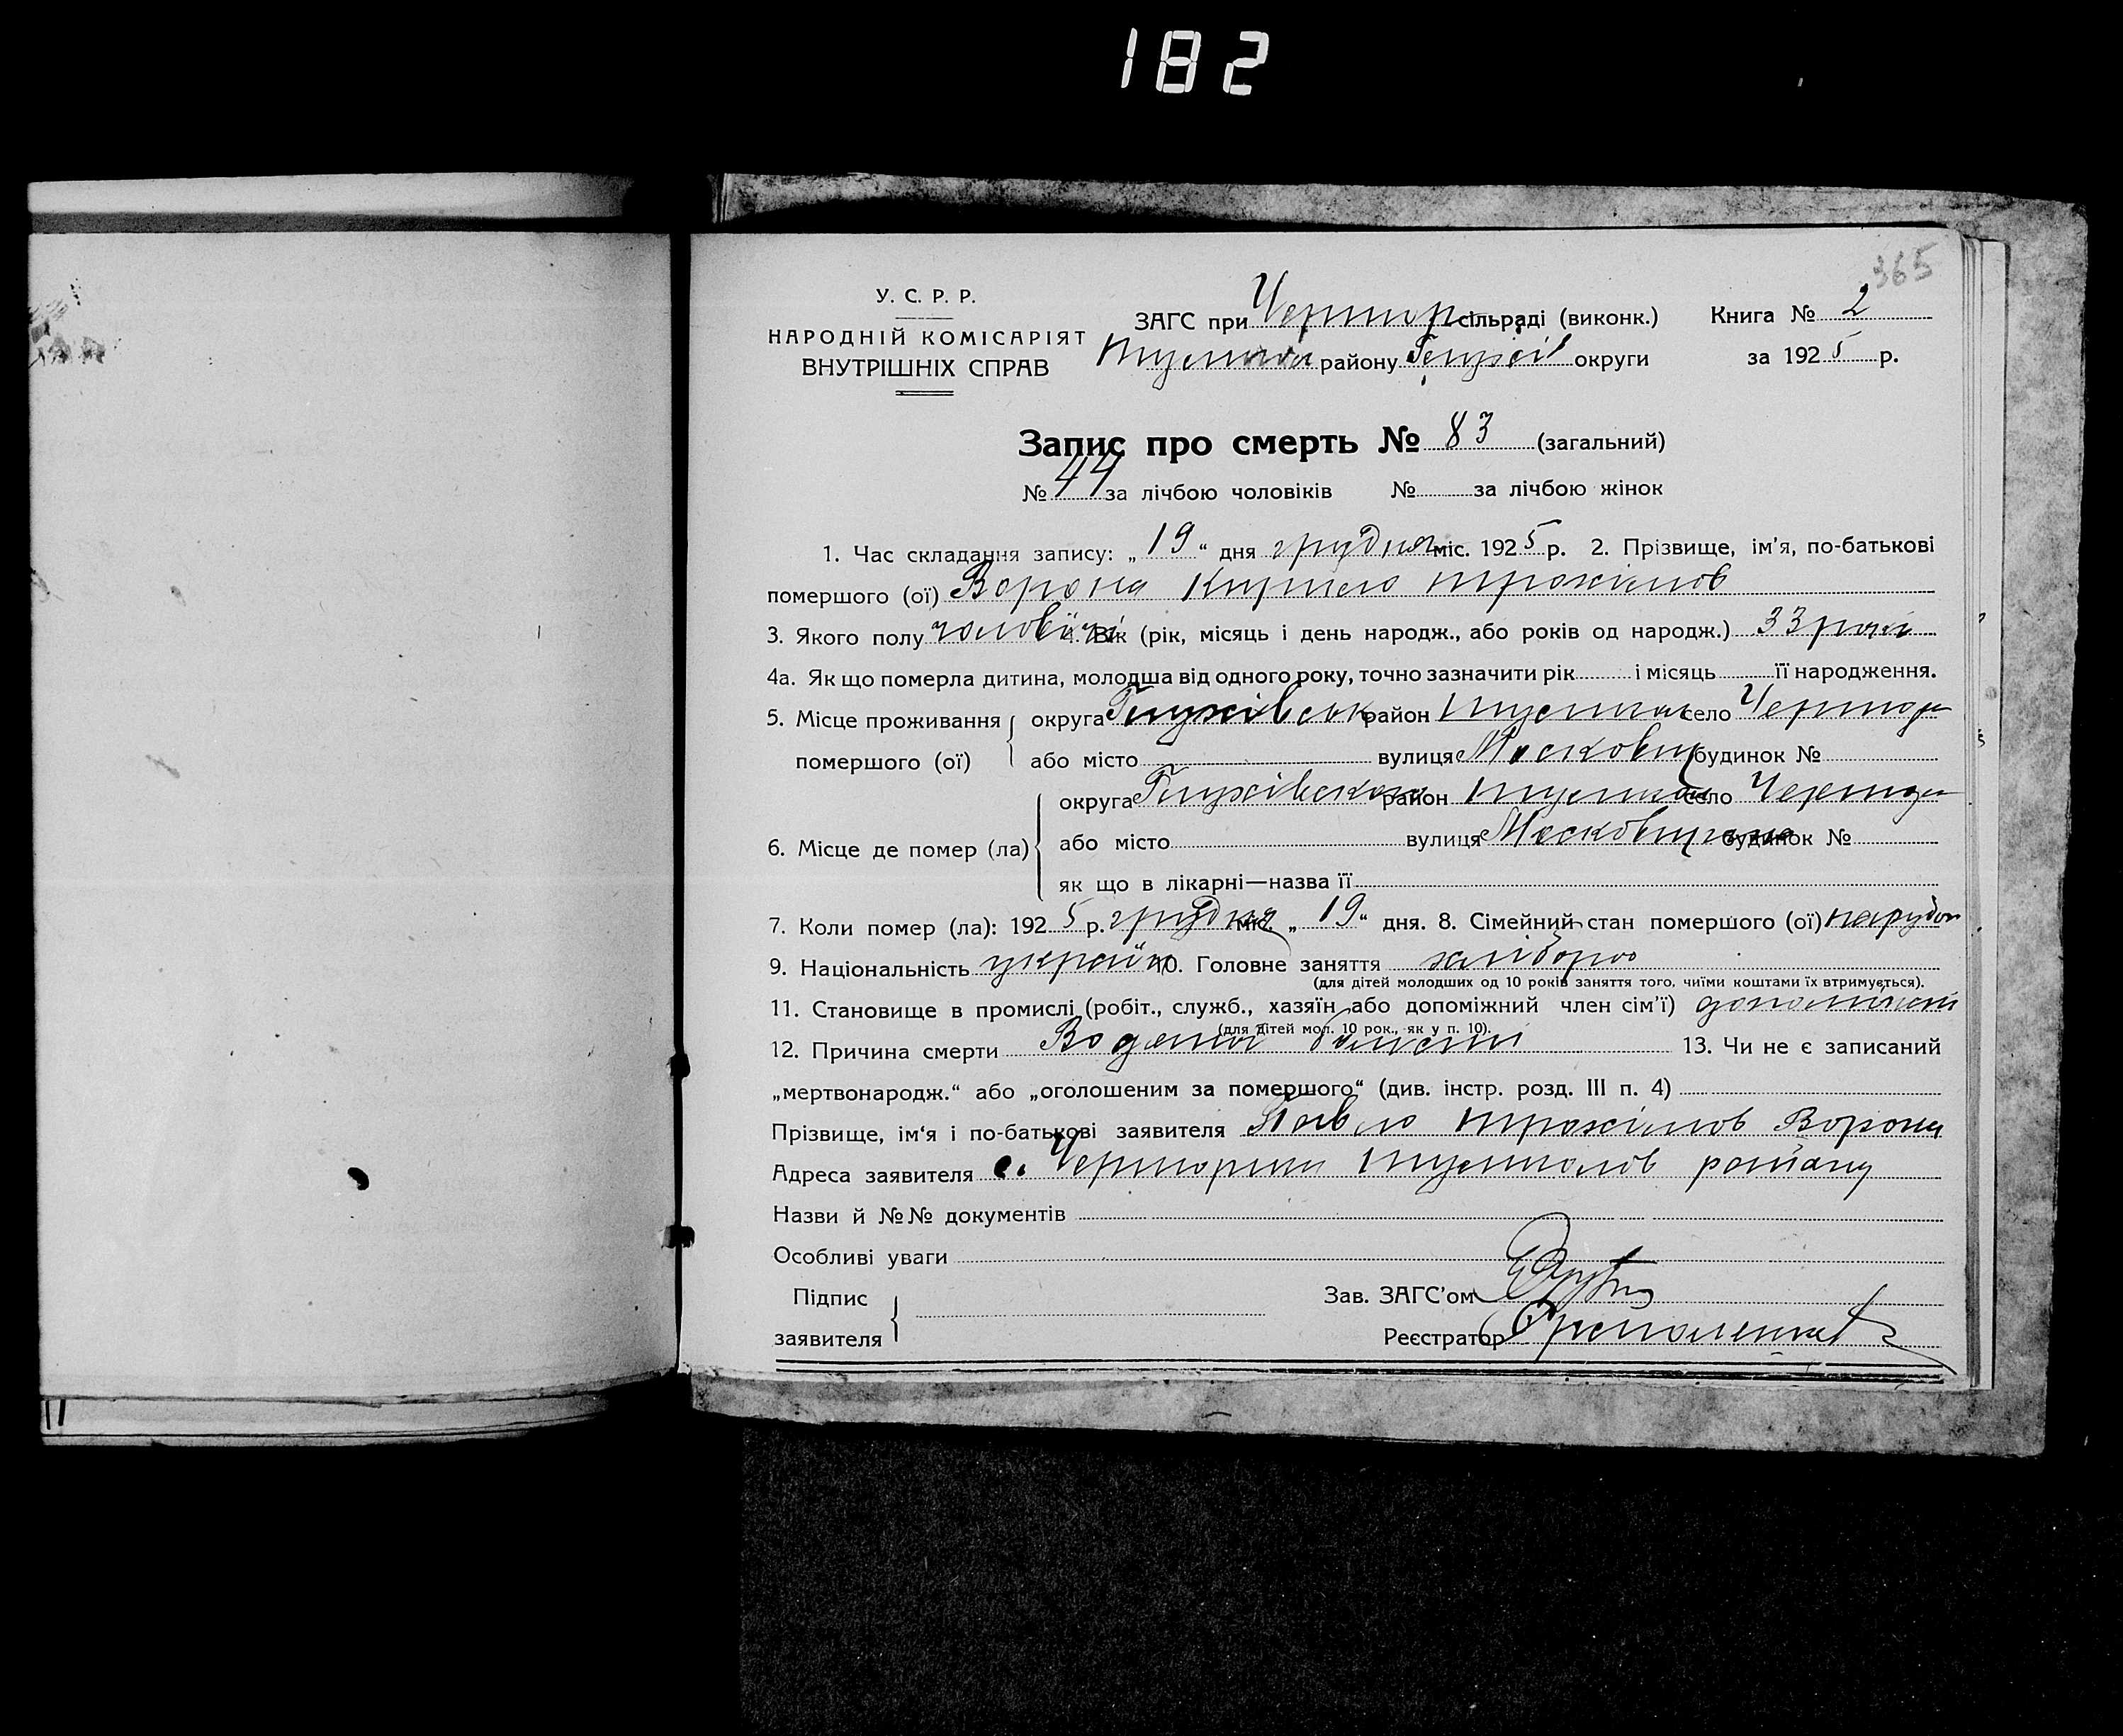 182
365
У. С. Р. Р.
НАРОДНІЙ КОМІСАРІЯТ
ВНУТРІШНІХ СПРАВ
ЗАГС при Чертор сільраді (виконк.) Книга № 2
району Глухів округи за 1925 р.
Запис про смерть № 83 (загальний)
№ 44 за лічбою чоловіків № за лічбою жінок
1. Час складання запису: „19“ дня грудня міс. 1925 р. 2. Прізвище, ім'я, по-батькові
помершого (ої) Ворона Кирило трохимов
3. Якого полу чоловічі 4. Вік (рік, місяць і день народж., або років од народж.) 33 роки
4а. Як що померла дитина, молодша від одного року, точно зазначити рік і місяць її народження.
5. Місце проживання округа Глухівськ район село Чертори
помершого (ої) або місто вулиця будинок №
округа Глухівськ район село Чертори
6. Місце де помер (ла) або місто вулиця будинок №
як що в лікарні—назва її
7. Коли помер (ла): 1925 р. грудня міс. „19“ дня. 8. Сімейний стан помершого (ої) парубок
9. Національність україн 10. Головне заняття хлібороб
(для дітей молодших од 10 років заняття того, чиїми коштами їх втримується).
11. Становище в промислі (робіт., служб., хазяїн або допоміжний член сім'ї) допоміжний
(для дітей мол. 10 рок., як у п. 10).
12. Причина смерти Водяной болісті 13. Чи не є записаний
„мертвонародж.“ або „оголошеним за помершого“ (див. інстр. розд. III п. 4)
Прізвище, ім'я і по-батькові заявителя Павло трохимов Ворона
Адреса заявителя с. Черториги району
Назви й №№ документів
Особливі уваги
Підпис
заявителя
Зав. ЗАГС'ом
Реєстратор